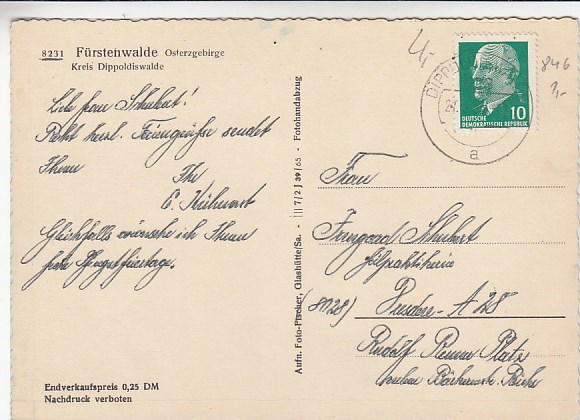 8231 Fürstenwalde Osterzgebirge
Kreis Dippoldiswalde
Lb. Frau Schubert!
Recht herzl. Feriengrüße sendet
Ihnen
Ihr
Gleichfalls wünsche ich Ihnen
frohe Pfingstfeiertage.
Endverkaufspreis 0,25 DM
Nachdruck verboten
Aufn. Foto-Pischer, Glashütte/Sa. - III/7/2 J 39/65 - Fotohandabzug
4,-
846
DIPPO
a
10
DEUTSCHE
DEMOKRATISCHE REPUBLIK
Frau
Irmgard Schubert
Heilpraktikerin
(8028) Dresden-A 28
Rudolf Renner Platz